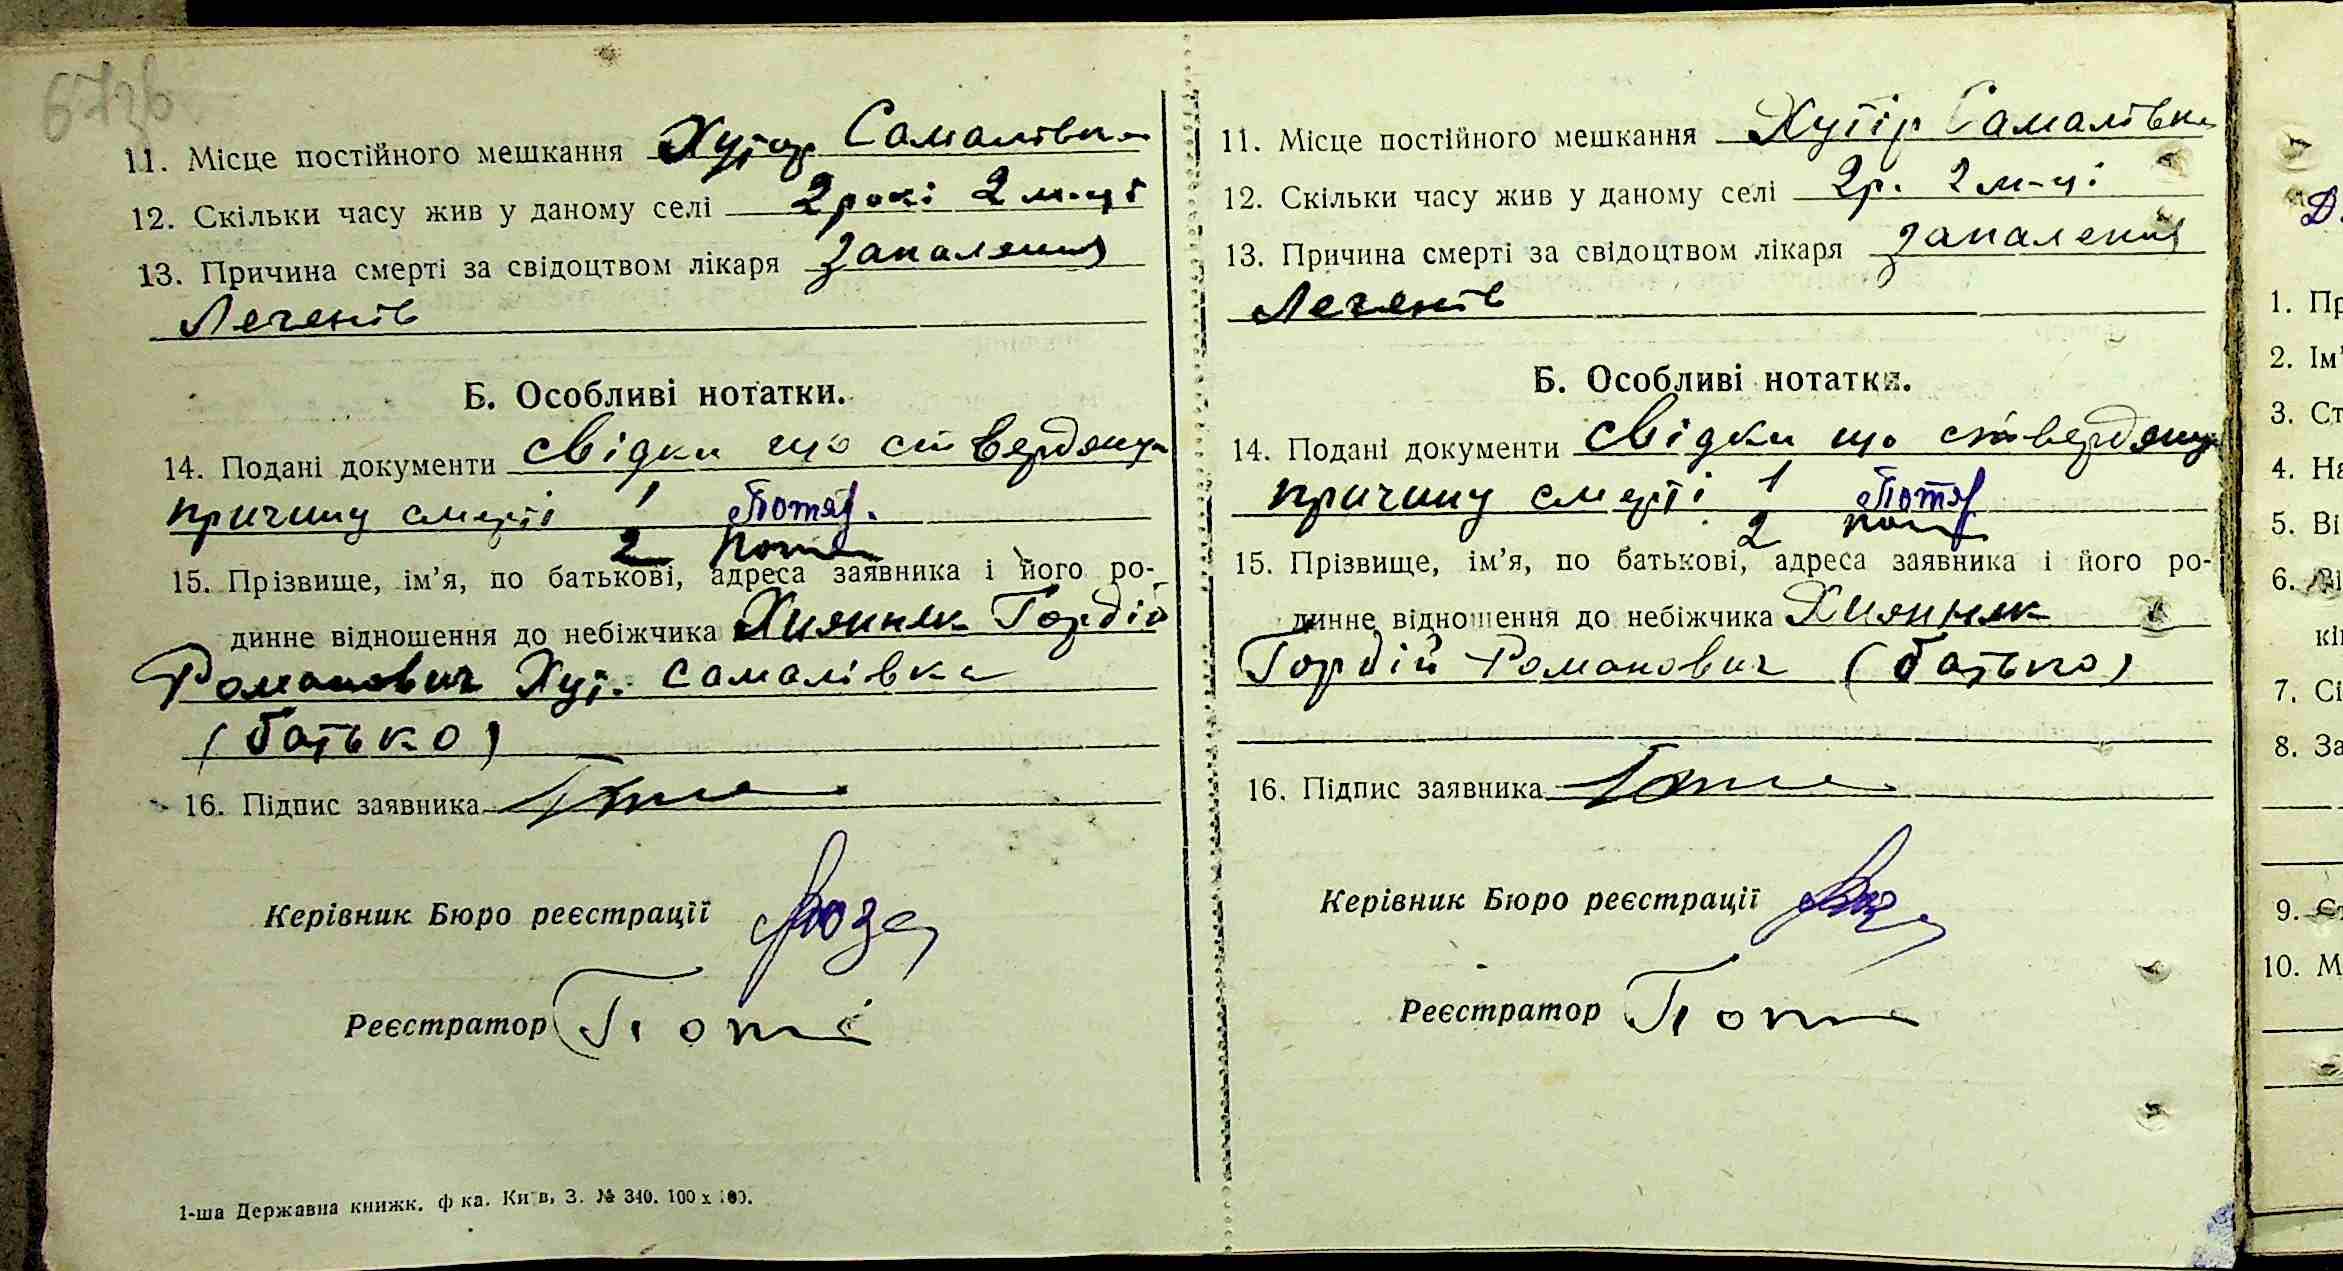 673в
11. Місце постійного мешкання Хутор Самалівка
12. Скільки часу жив у даному селі 2 рокі 2 м-ці
13. Причина смерті за свідоцтвом лікаря запалення
Легенів
Б. Особливі нотатки.
14. Подані документи свідки що ствердяць
причину смерті 1 Потяг.
2
15. Прізвище, ім’я, по батькові, адреса заявника і його ро-
динне відношення до небіжчика Хиянник Гордій
Романович Хут. Самалівка
(батько)
16. Підпис заявника
Керівник Бюро реєстрації
Реєстратор
1-ша Державна книжк. ф ка. Київ, З. № 340. 100 х 100.
11. Місце постійного мешкання Хутір Самалівка
12. Скільки часу жив у даному селі 2р. 2 м-ці
13. Причина смерті за свідоцтвом лікаря запалення
Легенів
Б. Особливі нотатки.
14. Подані документи свідки що ствердяць
причину смерті 1 Потяг
2
15. Прізвище, ім’я, по батькові, адреса заявника і його ро-
динне відношення до небіжчика Хиянник
Гордій Романович (батько)
16. Підпис заявника
Керівник Бюро реєстрації
Реєстратор
Д.
1. Пр
2. Ім’
3. Ст
4. На
5. Ві
6. Ві
кін
7. Сі
8. За
9. Ст
10. М